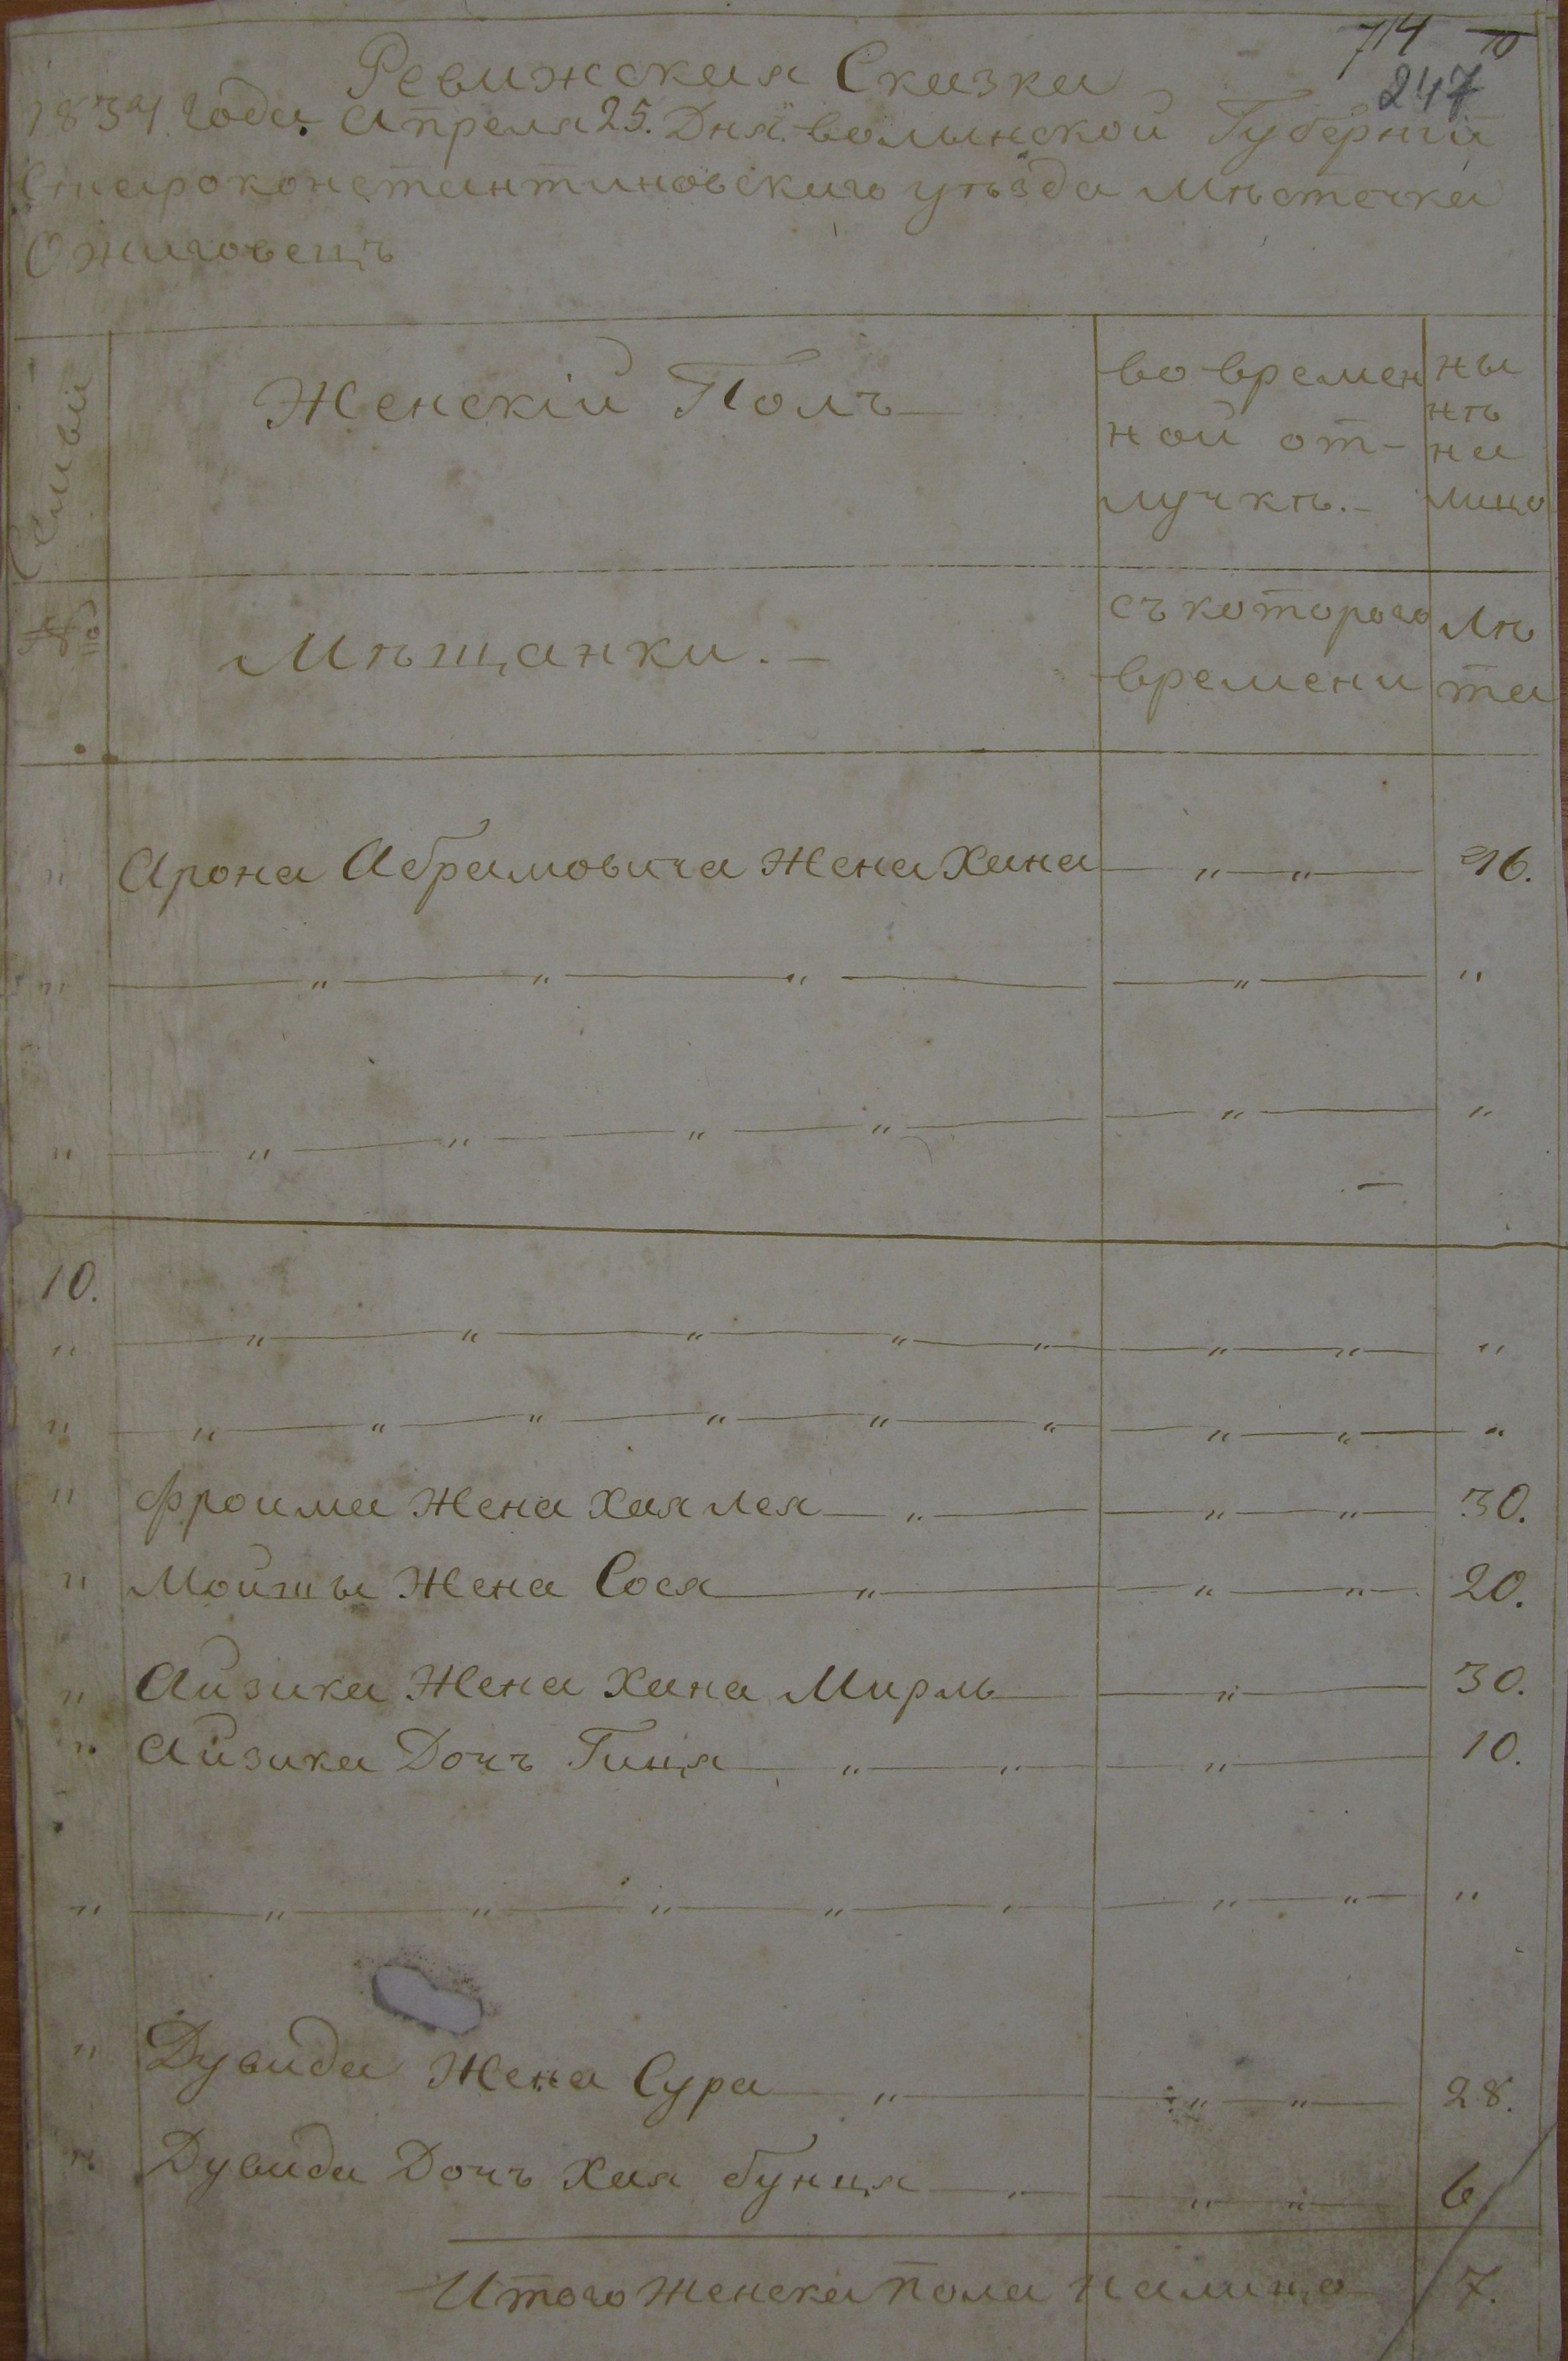 714 10
247
Ревижская Сказка
1834 года Апреля 25. Дня волынской Губерніи
Староконстантиновскаго уѣзда мѣстечка
Ожиговецъ
Семьи
Женскій Полъ
во времен
ной от-
лучкѣ.-
ны
нѣ
на
лицо
№
Мѣщанки.-
съ котораго
времени
Лѣ
та
" Арона Абрамовича Жена Хана " " 16.
" " " " " "
" " " " " " "
10.
" " " " " " " " "
" " " " " " " " " "
" Фроима Жена Хая Лея " " " 30.
" Мошкы Жена Сося " " " 20.
" Айзика Жена Хана Мирль " 30.
" Айзика Дочъ Гинця " " " 10.
" " " " " " " " "
" Дувида Жена Сура " " " 28.
" Дувида Дочъ Хая бунця " " " 6
Итого женска пола налицо 7.